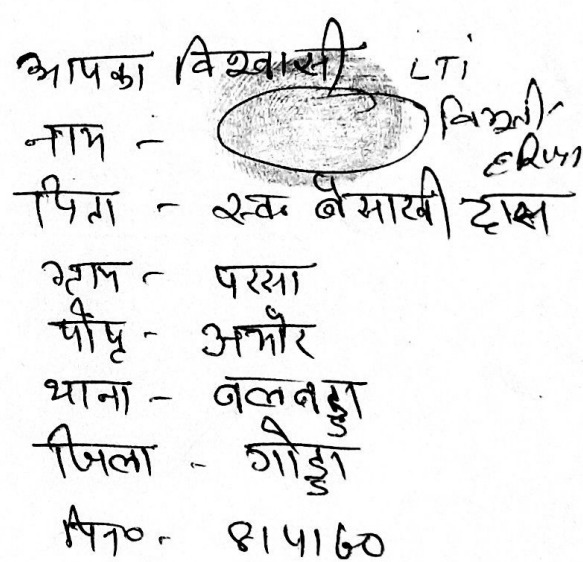 आपका विश्वासी LTI
नाम - विभूती
पिता - स्व० बैसाखी दास
ग्राम - परसा
पो० - अमौर
थाना - बलबड्डा
जिला - गोड्डा
पिन० - 814160